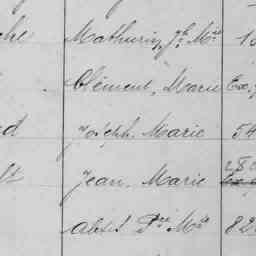 Mathurin, Jh Mie
Clément, Marie Exe
Joseph, Marie 54
Jean, Marie 280
Alexis Pre Mie 82